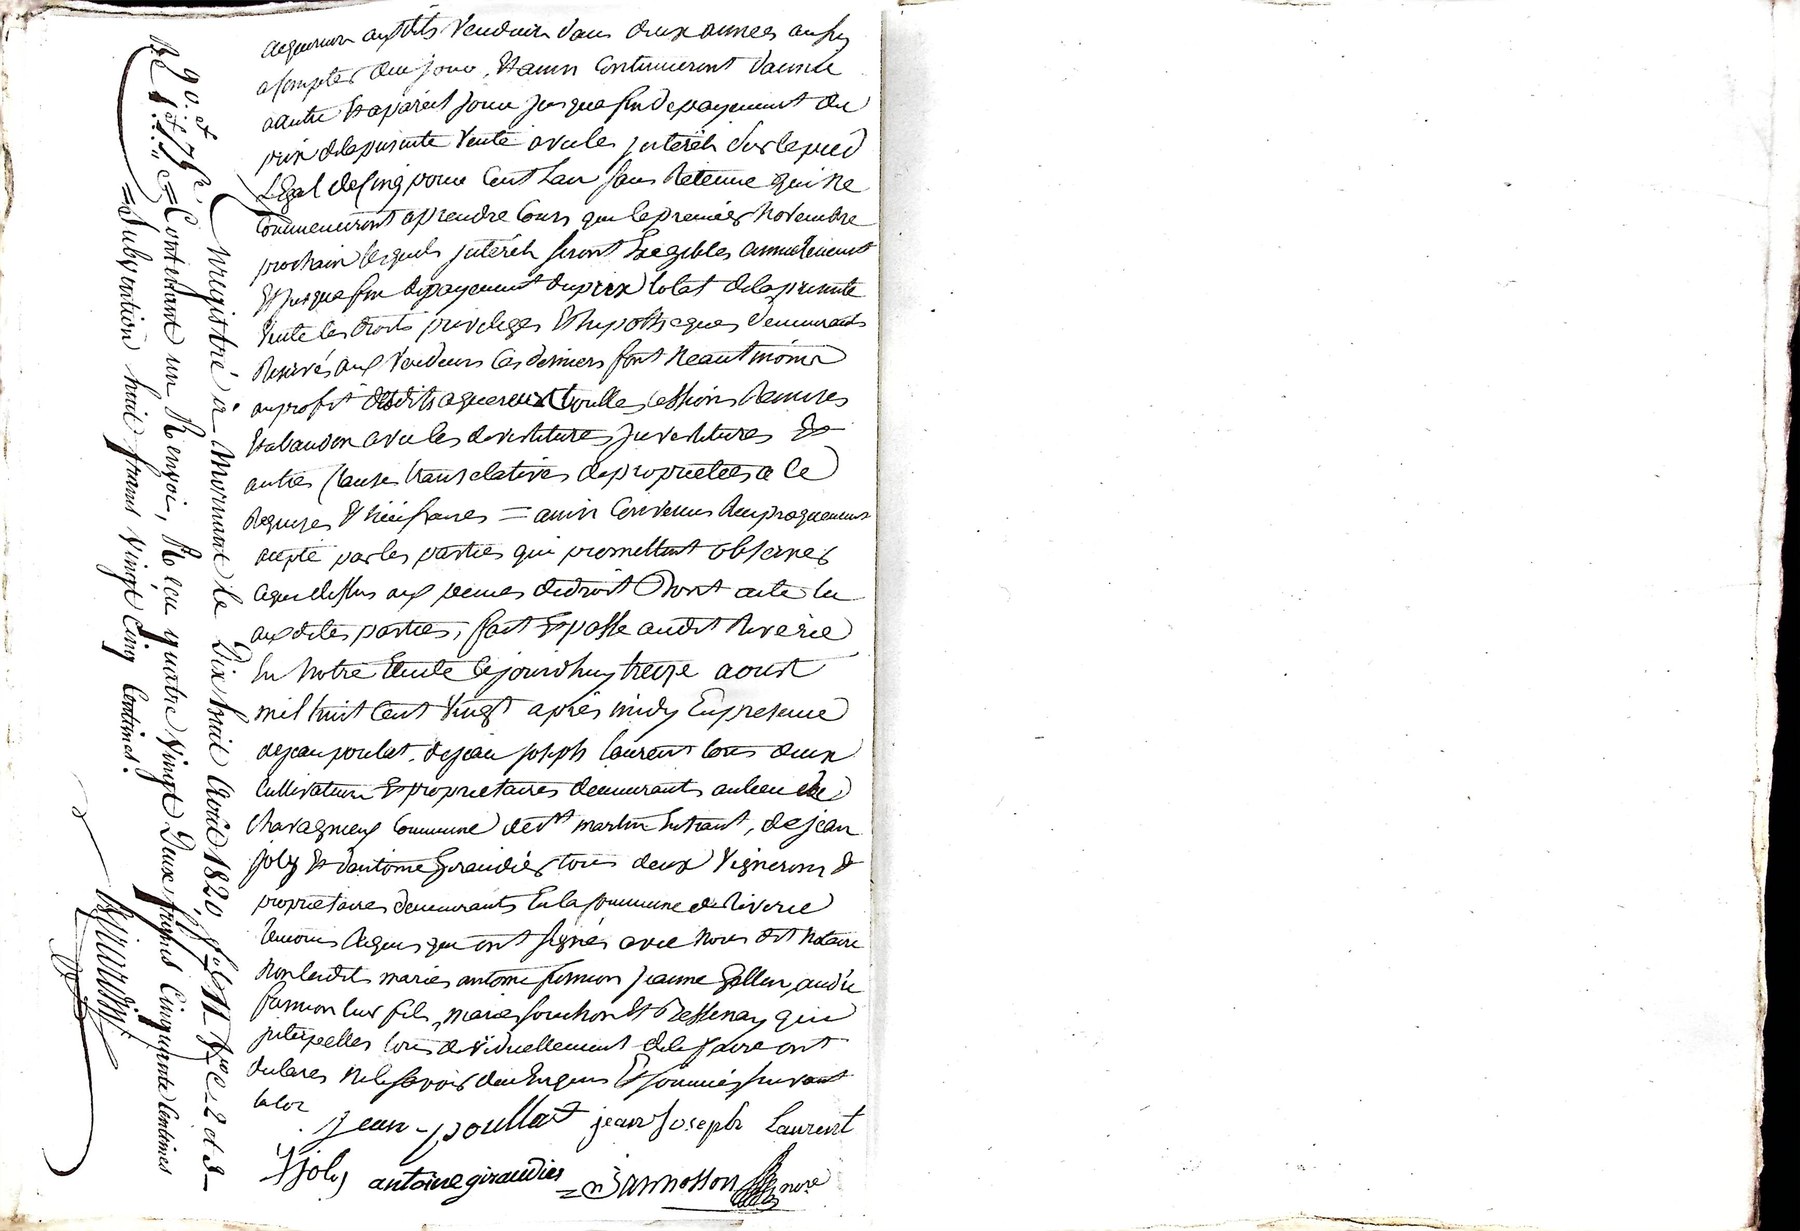 acquereurs auxdits Vendeurs dans deux annees aussy
a compter de ce jour, Et ainsi Continueront d'année
a autre Et apareil Jour jusqua fin de payement du
prix de la presente Vente avec les jnterêts Sur le pied
Legal de cinq pour Cent L'an sans Retenue qui Ne
Commenceront aprendre Cours que le premier Novembre
prochain lesquels jnterêts seront Exegibles annuelement
Et jusqua fin de payement du prix total de la presente
Vente les droits privileges Et hypotheques demeurants
Reservés aux Vendeurs Ces derniers font Neantmoins
au profit desdits aquereurs touttes cessions Remises
Et abandon avec les devestitures jnvestitures Et
autres Clauses translatives de proprietées a Ce
Requises Et Necessaires = ainsi Convenus Reciproquement
accepté par les parties qui promettent observer
ce que dessus aux peines de droit Dont acte lu
auxdites parties, fait Et passé audit Riverie
En Notre Etude Cejourdhuy treize aoust
mil huit Cent Vingt après midy En presence
de jean poulat, de jean joseph laurent tous deux
Cultivateurs Et proprietaires demeurants au lieu de
Chavagnieux Commune de St martin, de jean
joly Et d'antoine Giraudier tous deux Vignerons Et
proprietaires demeurants En la Commune de Riverie
temoins Requis qui ont signés avec Nous dit Notaire
Non lesdits mariés antoine jeanne
leur fils, mariés souchon Et Ressenay qui
jnterpellés tous de le faire ont
declarés Ne le savoir de ce Enquis Et sommés suivant
la loi
jean poullat jean Joseph Laurent
J joly antoine giraudier = Jannosson nore
Enregistré à Mornant le Dix huit Août 1820, fol. 11 Vo C 2 et 3
R. et Contenant un Renvoi, Reçu quatre Vingt Deux francs Cinquante Centimes
= Subvention huit francs Vingt Cinq Centimes.